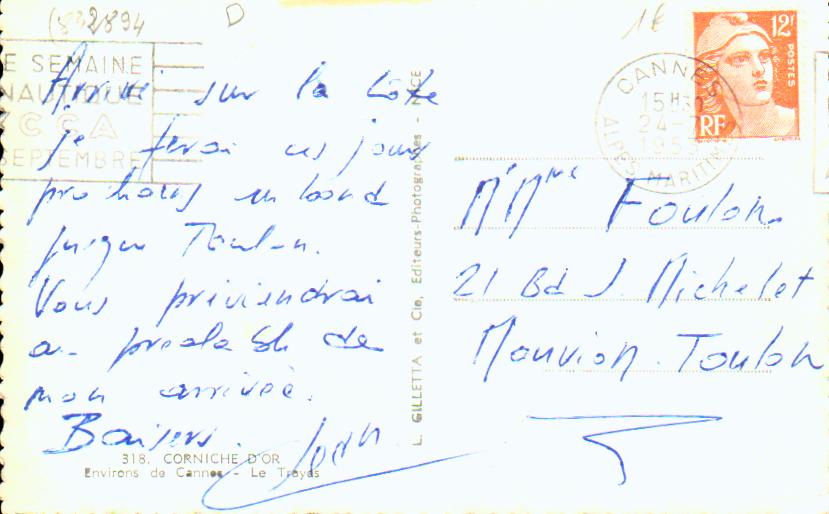 (832894
1€
E SEMAINE
NAUTIQUE
CCA
SEPTEMBRE
CANNES
15H
24-7
195
ALPES MARITIM
12F
POSTES
RF
Arrivé sur la Côte
je ferai ces jours
prochains un bond
jusque Toulon.
Vous préviendrai
au préalable de
mon arrivée.
Baisers.
318. CORNICHE D'OR
Environs de Cannes - Le Trayas
L. GILLETTA et Cie, Editeurs-Photographes - NICE
M Mme Foulon
21 Bd J. Michelet
Mourillon. Toulon